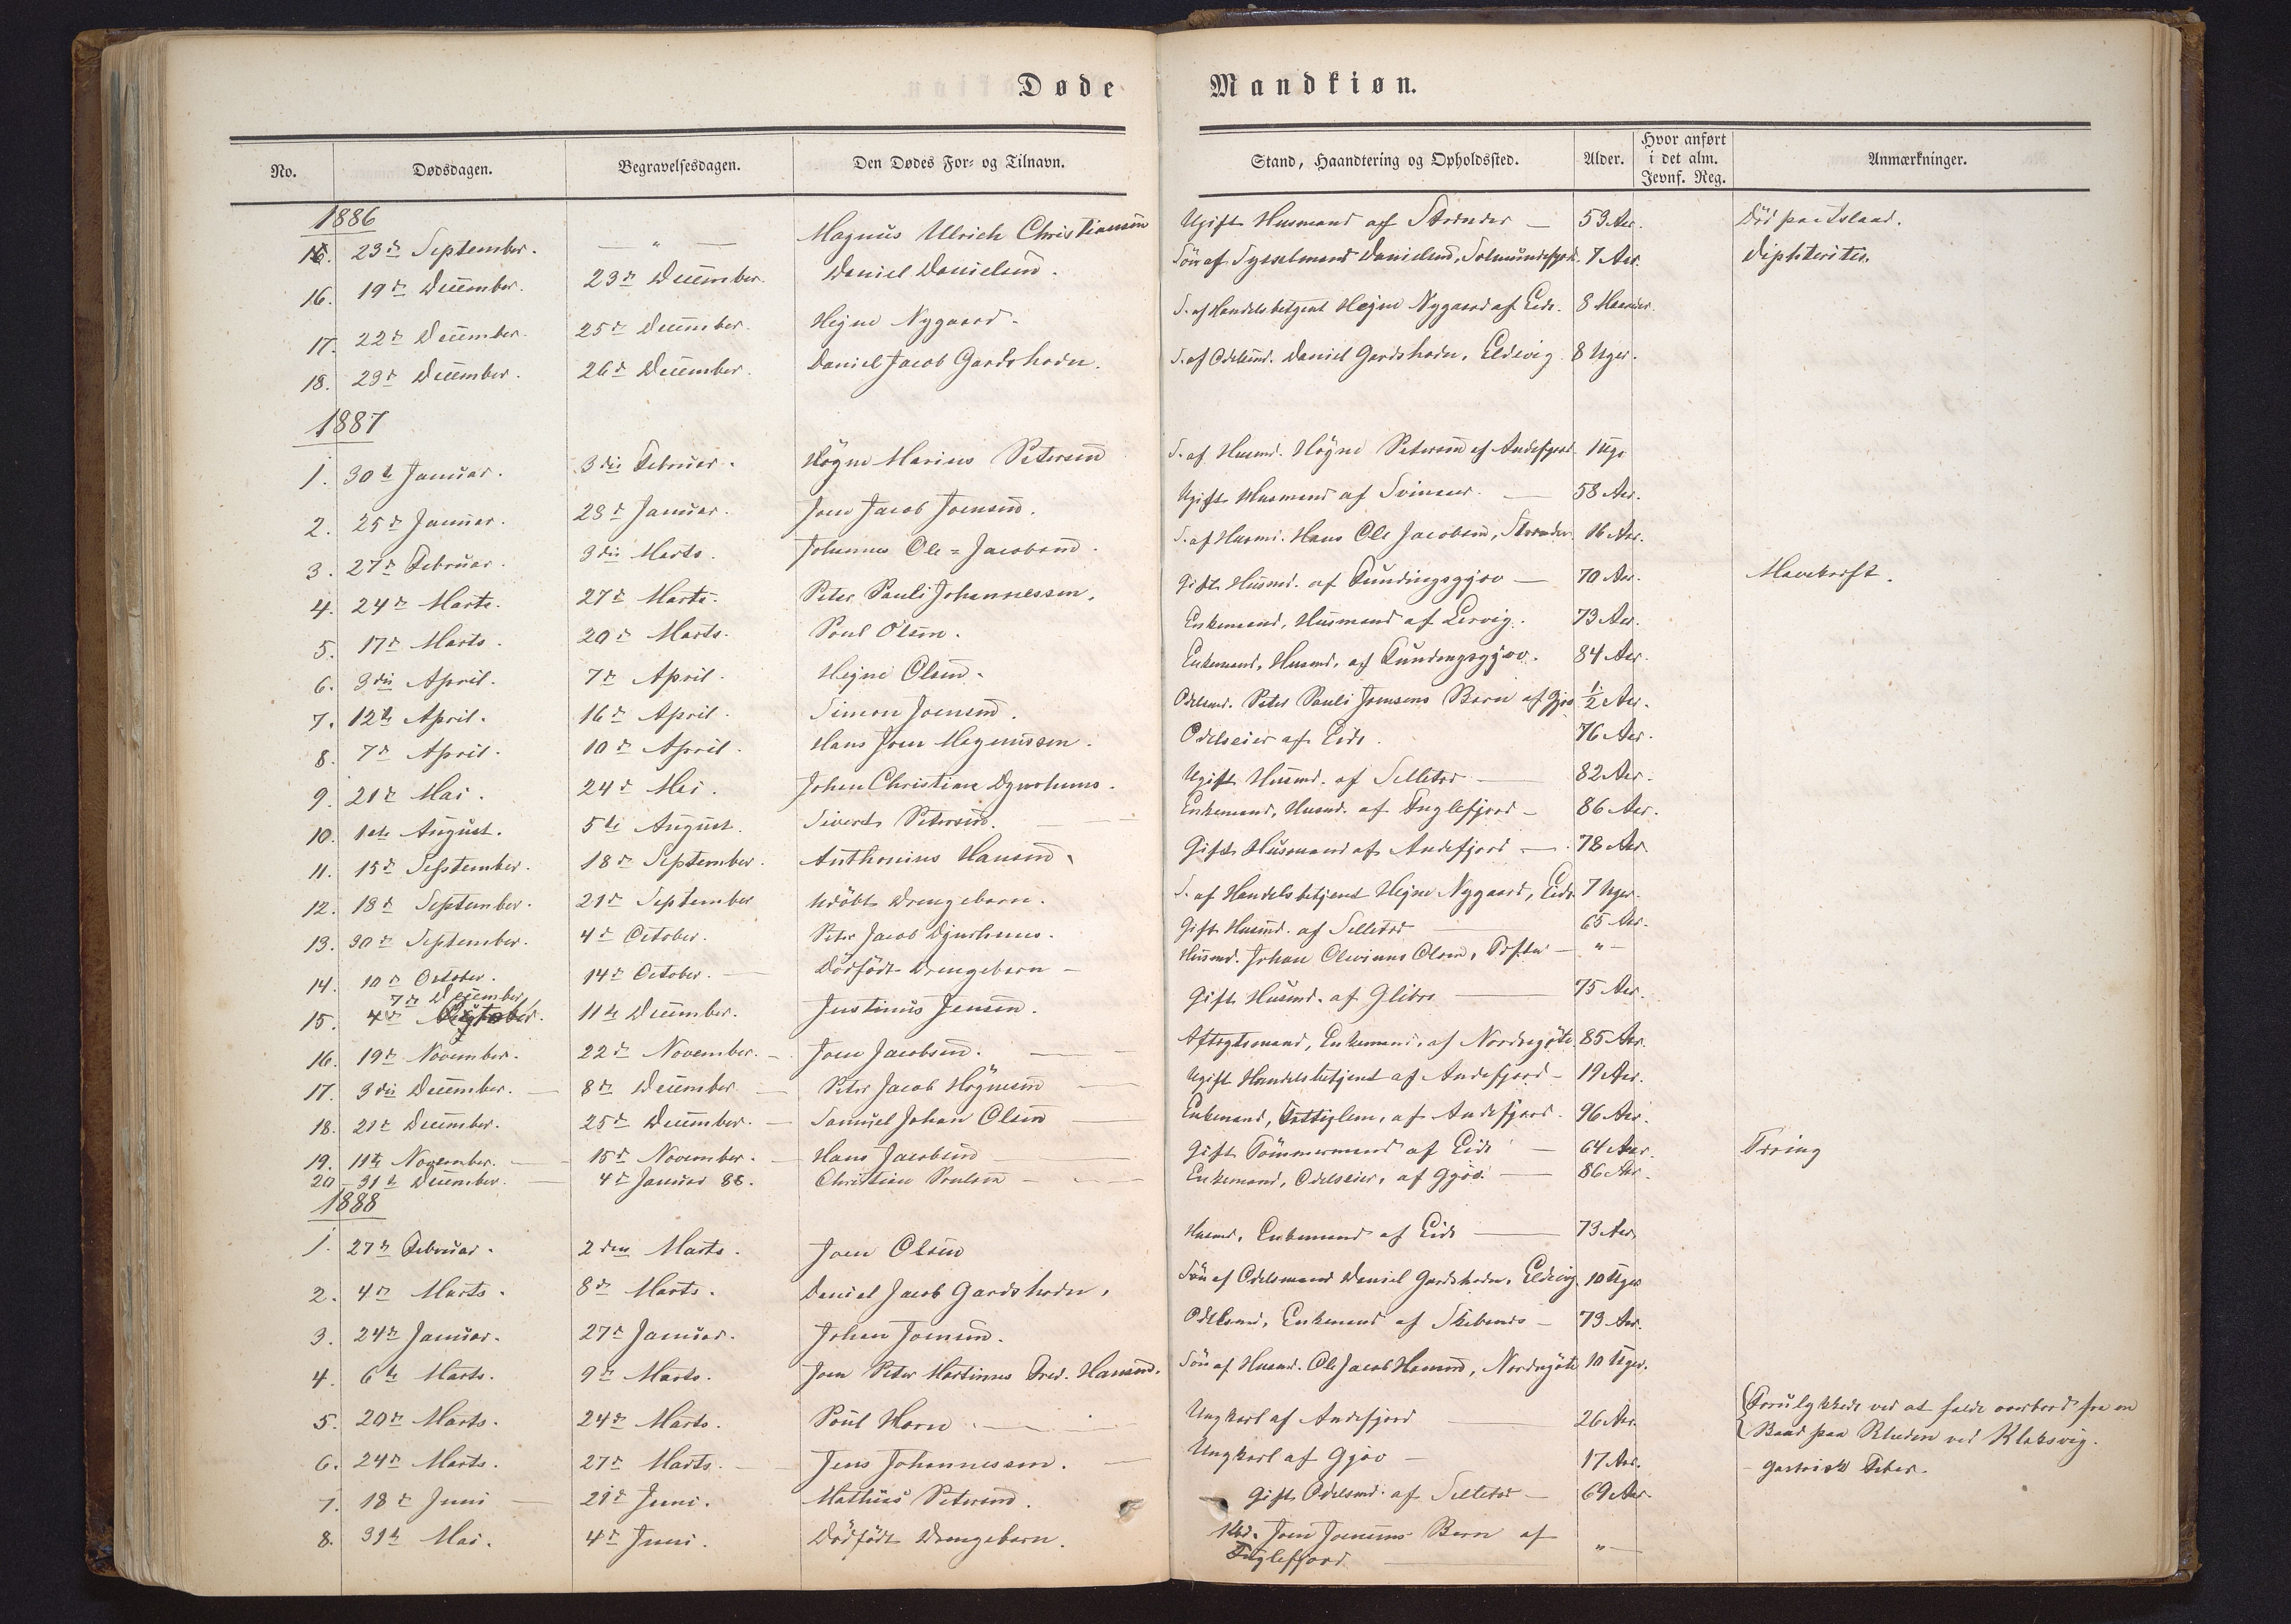 Døde Mandkiøn.
No. Dødsdagen. Begravelsesdagen. Den Dødes For- og Tilnavn. Stand, Haandtering og Opholdssted. Alder. Hvor anført i det alm. Jevnf. Reg. Anmærkninger.
1886
15. 23de September. — " — Magnus Ulrich Christiansen Ugift Husmand af Strender — 53 Aar. Død paa Island.
16. 19de December. 23de December. Daniel Danielsen. Søn af Sysselmand Danielsen, Solmundefjord. 7 Aar. Diphteritis.
17. 22de December. 25de December. Hejne Nygaard. S. af Handelsbetjent Hejne Nygaard af Eide. 8 Maaneder.
18. 23de December. 26de December. Daniel Jacob Gardshodn. S. af Odelsmd. Daniel Gardshodn, Eldevig 8 Uger.
1887
1. 30te Januar. 3die Februar. Høgne Marius Petersen S. af Husmd. Høgne Petersen af Andefjord 1 Uge
2. 25de Januar. 28de Januar. Joen Jacob Joensen. Ugift Husmand af Svinaar. — 58 Aar.
3. 27de Februar. 3die Marts. Johannes Ole = Jacobsen. S. af Husmd. Hans Ole Jacobsen, Strender 16 Aar.
4. 24de Marts. 27de Marts. Peter Pauli Johannessen. Gift Husmd. af Fundingsgjov — 70 Aar. Mavekræft.
5. 17de Marts. 20de Marts. Poul Olsen. Enkemand, Husmand af Lervig. 73 Aar.
6. 3die April. 7de April. Hejne Olsen. Enkemand, Husmd. af Fundingsgjov. 84 Aar.
7. 12te April. 16de April. Simon Joensen. Odelsmd. Peter Pauli Joensens Barn af Gjov 1/2 Aar.
8. 7de April. 10de April. Hans Joen Magnussen. Odelseier af Eide. 76 Aar.
9. 21de Mai. 24de Mai. Johan Christian Dyurhuus. Ugift Husmd. af Selletrø — 82 Aar.
10. 1ste August. 5te August. Sivert Petersen. Enkemand, Husmd. af Fuglefjord — 86 Aar.
11. 15de September. 18de September. Anthonius Hansen. Gift Husmand af Andefjord — 78 Aar.
12. 18de September. 21de September Udøbt Drengebarn. S. af Handelsbetjent Hejne Nygaard, Eide 7 Uger.
13. 30te September. 4de October. Peter Jacob Djurhuus. Gift Husmd. af Selletrø — 65 Aar.
14. 10de October. 14de October. — Dødfødt Drengebarn — Husmd. Johan Olevinus Olsen, — " —
7de December
15. 4de October. 11te December. Justinus Jensen. Gift Husmd. af Glibre — 75 Aar.
16. 19de November. 22de November. — Joen Jacobsen. — Aftægtsmand, Enkemand, af Nordregøte. 85 Aar.
17. 3die December. — 8de December — Peter Jacob Høgnesen — Ugift Handelsbetjent af Andefjord — 19 Aar.
18. 21de December. 25de December. — Samuel Johan Olsen — Enkemand, Fattiglem, af Andefjord. 96 Aar.
19. 11te November. — 15de November. — Hans Jacobsen — Gift Tømmermand af Eide — 64 Aar. Tæring
20 — 31te December. — 4de Januar 88. Christian Poulsen — Enkemand, Odelseier, af Gjov. — 86 Aar.
1888
1. 27de Februar. 2den Marts. Joen Olsen Husmd. Enkemand af Eide — 73 Aar.
2. 4de Marts. 8de Marts. Daniel Jacob Gardshodn. Søn af Odelsmand Daniel Gardshodn, Eldevig. 10 Uger
3. 24de Januar. 27de Januar. Johan Joensen. Odelsmd. Enkemand af — 73 Aar.
4. 6te Marts. 9de Marts. Joen Peter Martinus Fred. Hansen. Søn af Husmd. Ole Jacob Hansen, Nordregøte 10 Uger.
5. 20de Marts. 24de Marts. Poul Horn — Ungkarl af Andefjord — 26 Aar. Forulykkede ved at falde overbord fra en
Baad paa Rheden ved Klaksvig.
6. 24de Marts. 27de Marts. — Jens Johannessen. — Ungkarl af Gjov — 17 Aar. — gastrisk Feber.
7. 18de Juni — 21de Juni. Mathias Petersen. Gift Odelsmd. af Selletrø — 69 Aar.
8. 31te Mai. 4de Juni. Dødfødt Drengebarn. Joen Joensens Barn af
Fuglefjord — " —